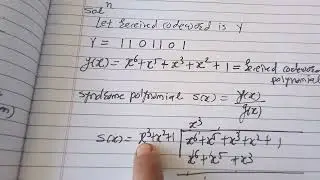 Solⁿ
Let received codeword is Y
Y = 1101101
y(x) = x⁶+x⁵+x³+x²+1 = received codeword
polynomial
Syndrome polynomial s(x) = y(x)/g(x)
x³
s(x) = x³+x²+1 | x⁶+x⁵+x³+x²+1
x⁶+x⁵ +x³